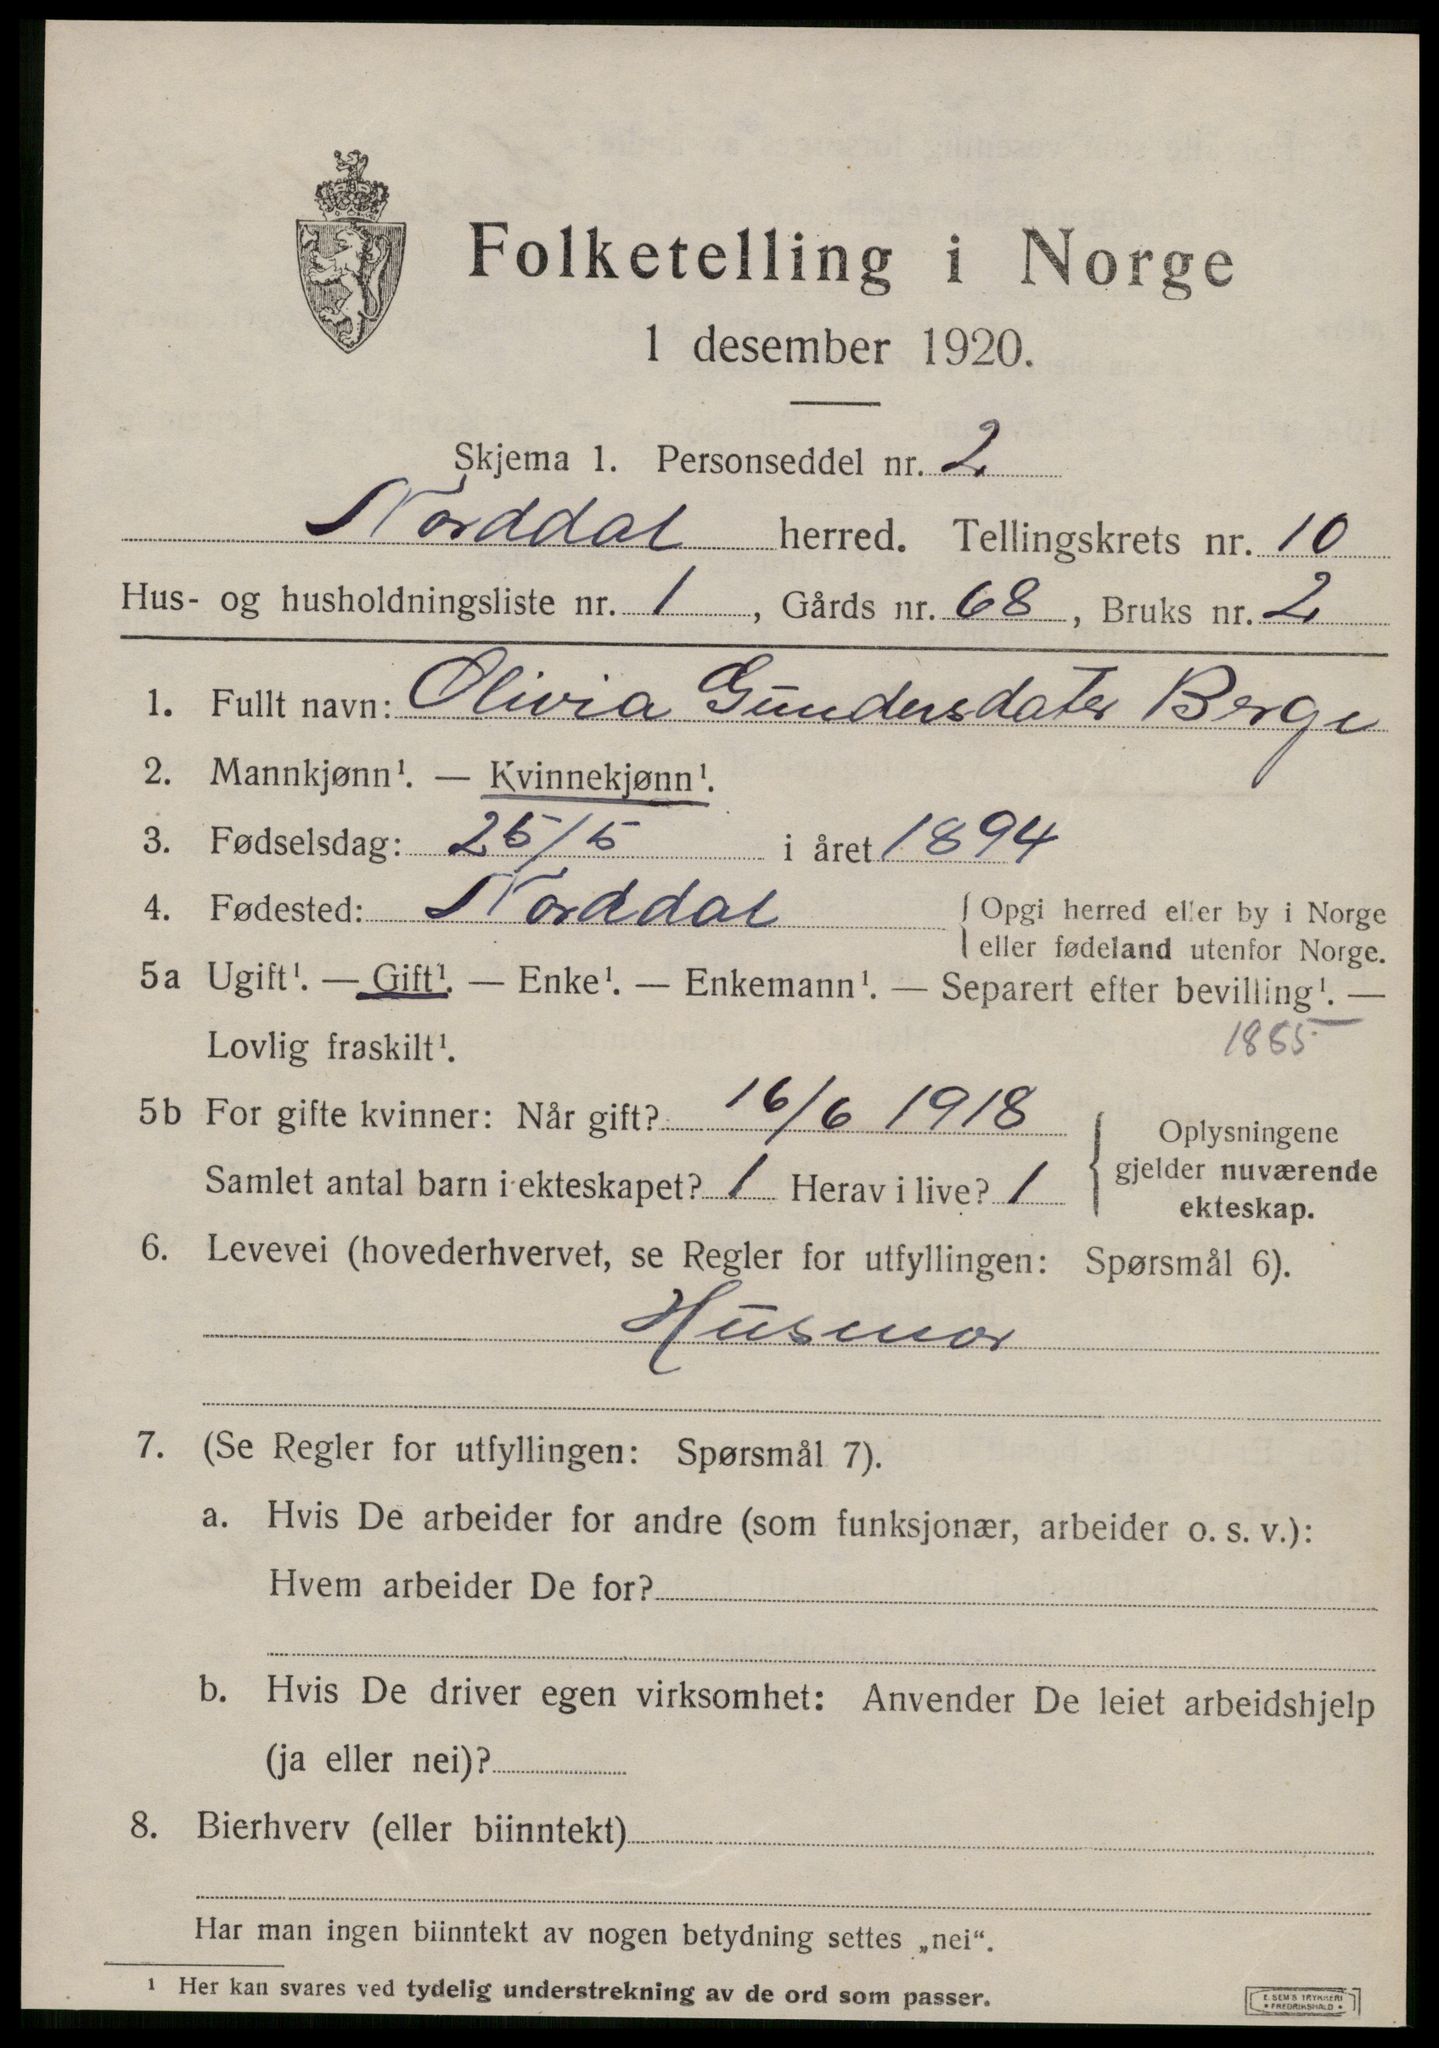 Folketelling i Norge
1 desember 1920.
Skjema 1. Personseddel nr. 2
Norddal herred. Tellingskrets nr. 10
Hus- og husholdningsliste nr. 1, Gårds nr. 68, Bruks nr. 2
1. Fullt navn: Olivia Gundersdater Berge
2. Mannkjønn¹. — Kvinnekjønn¹.
3. Fødselsdag: 25/5 i året 1894
4. Fødested: Norddal { Opgi herred eller by i Norge
eller fødeland utenfor Norge.
5a Ugift¹. — Gift¹. — Enke¹. — Enkemann¹. — Separert efter bevilling¹. —
Lovlig fraskilt¹. 1885
5b For gifte kvinner: Når gift? 16/6 1918
Samlet antal barn i ekteskapet? 1 Herav i live? 1
{ Oplysningene
gjelder nuværende
ekteskap.
6. Levevei (hovederhvervet, se Regler for utfyllingen: Spørsmål 6).
Husmor
7. (Se Regler for utfyllingen: Spørsmål 7).
a. Hvis De arbeider for andre (som funksjonær, arbeider o. s. v.):
Hvem arbeider De for?
b. Hvis De driver egen virksomhet: Anvender De leiet arbeidshjelp
(ja eller nei)?
8. Bierhverv (eller biinntekt)
Har man ingen biinntekt av nogen betydning settes „nei“.
¹ Her kan svares ved tydelig understrekning av de ord som passer.
E. SEM'S TRYKKERI
• FREDRIKSHALD •